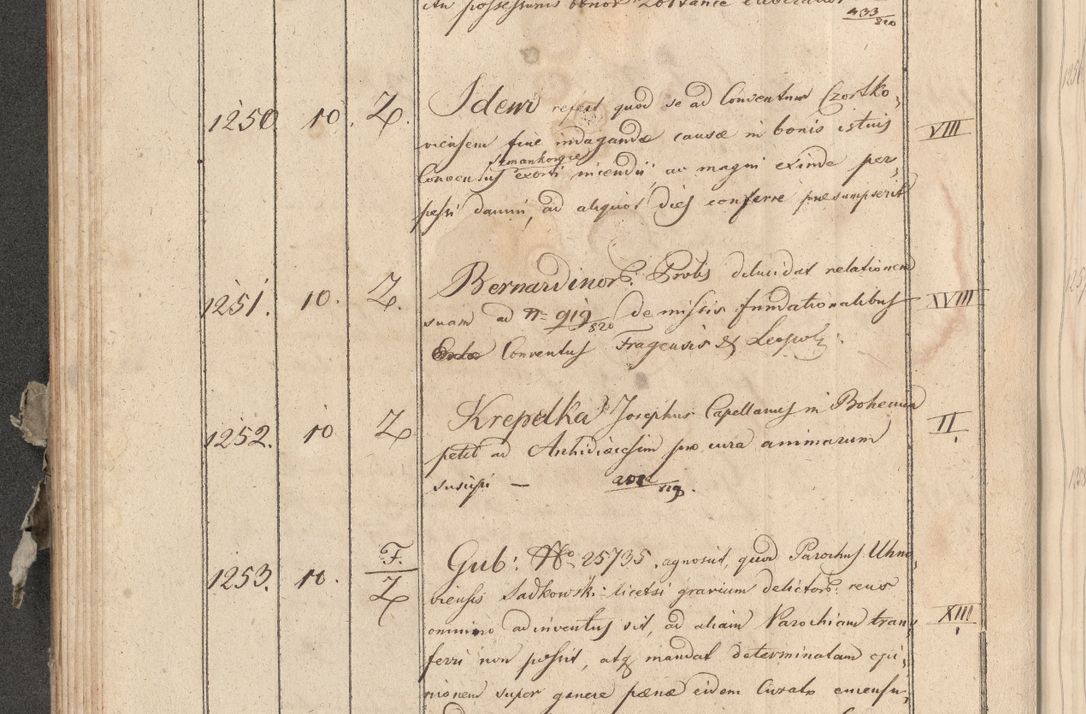 433/820
1250 10. Z. Idem refert quod se ad Conventum Czortko,
viensem fine indagandæ causæ in bonis istius VIII
Conventus exorti incendii, ac magni exinde per,
pessi damni, ad aliquot dies conferre præsumpserit
1251. 10. Z. Bernardinor. Probs delucidat relationem
suam ad N= 919/820 de missis fundationalibus XVIII
Conventus Fragensis & Leopol:
1252. 10 Z Krepelka Josephus Capellanus in Bohemia II
petit ad Archidiæcesim pro cura animarum
suscipi —
1253. 10. F./Z Gub: No 25735. agnoscit, quod Parochus Uhno,
viensis Sadkowski licetsi gravium delictor. reus
omnino adinventus sit, ad aliam Parochiam trans XIII
ferri non possit, atq mandat determinatam opi,
nionem super genere pænæ eidem Curato emensu,